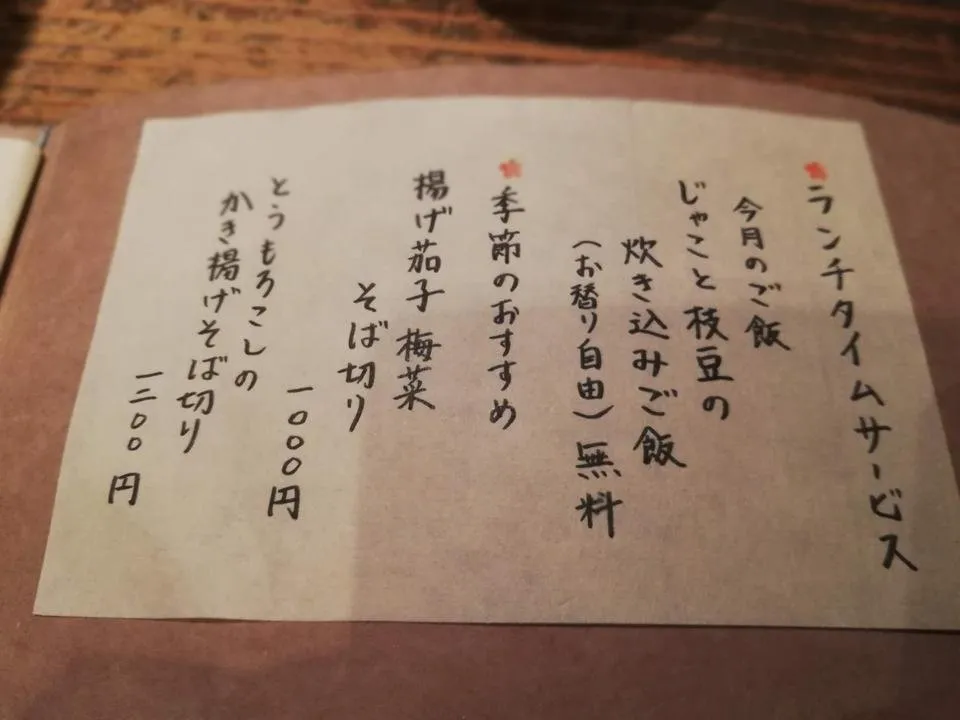 ランチタイムサービス
今月のご飯
じゃこと枝豆の
炊き込みご飯
(お替り自由)無料
季節のおすすめ
揚げ茄子 梅菜
そば切り
一000円
とうもろこしの
かき揚げそば切り
一三00円